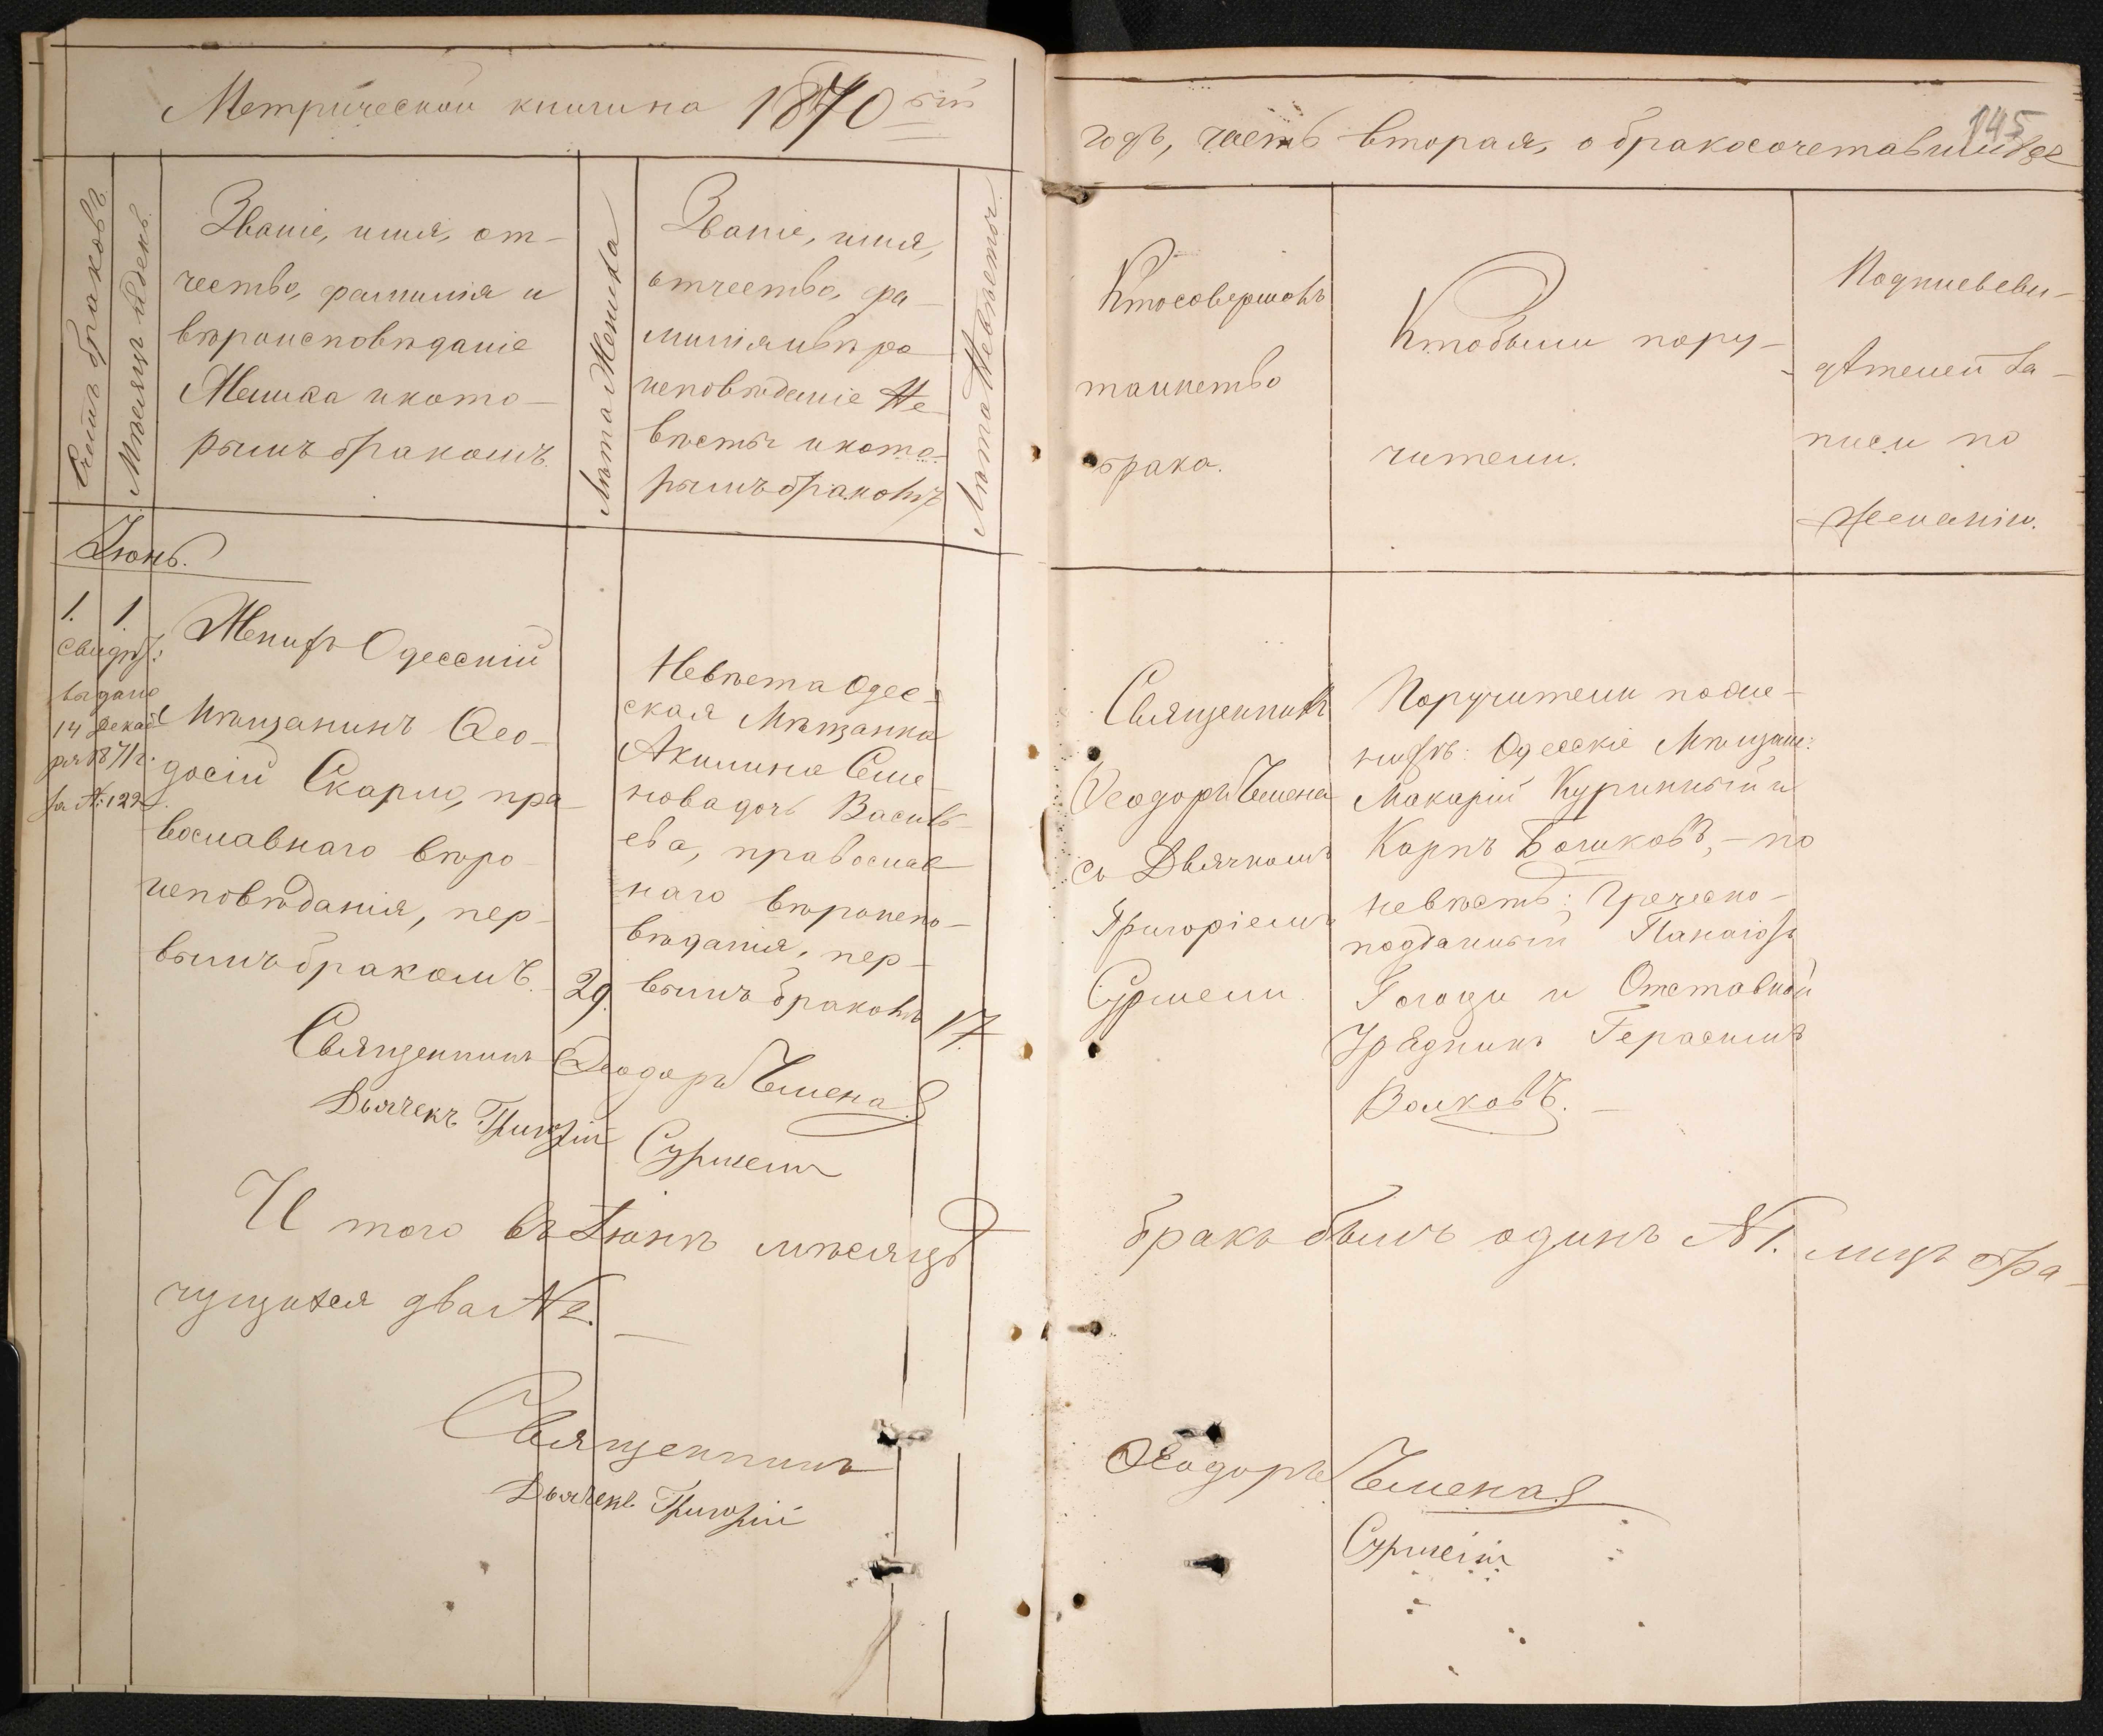 Метрической книги на 1870 ый
годъ, часть вторая, о бракосочетавшихся
145
Счетъ браковъ.
Мѣсяцъ и день.
Званіе, имя, от-
чество, фамилія и
вѣроисповѣданіе
Жениха и кото-
рымъ бракомъ.
Лѣта Жениха
Званіе, имя,
отчество, фа-
милія и вѣро
исповѣданіе Не-
вѣсты и кото-
рымъ бракомъ
Лѣта Невѣсты.
Кто совершалъ
таинство
брака.
Кто были пору-
чители.
Подпись сви-
дѣтелей за-
писи по
желанію.
Іюнь.
1. 1.
свидѣт:
выдано
14 Декаб
ря 1871 г.
за №: 122.
Женихъ Одесскій
Мѣщанинъ Ѳео-
досій Скарло, пра-
вославнаго вѣро-
исповѣданія, пер-
вымъ бракомъ.
29.
Невѣста Одес-
ская Мѣщанка
Акилина Симе-
нова дочь Василь-
ева, православ-
наго вѣроиспо-
вѣданія, пер-
вымъ бракомъ
17.
Священникъ Ѳеодоръ
Дьячекъ Григорій
Священникъ
Ѳеодоръ
съ Дьячкомъ
Григоріемъ
Поручители по же-
нихѣ: Одесскіе Мѣщане:
Макарій Куринный и
Карпъ Волковъ, - по
невѣстѣ: Греческо-
подданный Панаіотъ
и Отставной
Урядникъ Герасимъ
Волковъ. -
И того въ Іюнѣ мѣсяцѣ
бракъ былъ одинъ № 1. лицъ бра-
чущихся два № 2. -
Священникъ
Ѳеодоръ
Дьячекъ Григорій